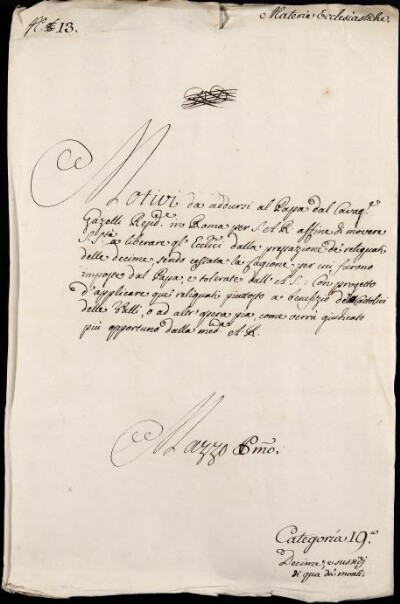 N.º 13.
Materie Ecclesiastiche.
Motivi da addursi al Papa dal Cavag.re
Gazelli Resid.te in Roma per S. A. R. affine di movere
S. S.tà a liberare gl' Eccl.ci dalla prestazione de reliquati
delle decime, sendo cessata la cagione per cui furono
imposte dal Papa, e tolerate dall' A. S.: Con progetto
d'applicare que' reliquati piutosto a benefizio de Catolici
delle Valli, o ad altr' opera pia, come verrà giudicato
più opportuno dalla med.a A. R.
Mazzo Pmo.
Categoria 19.a
Decime, e sussidj
di qua da' monti.